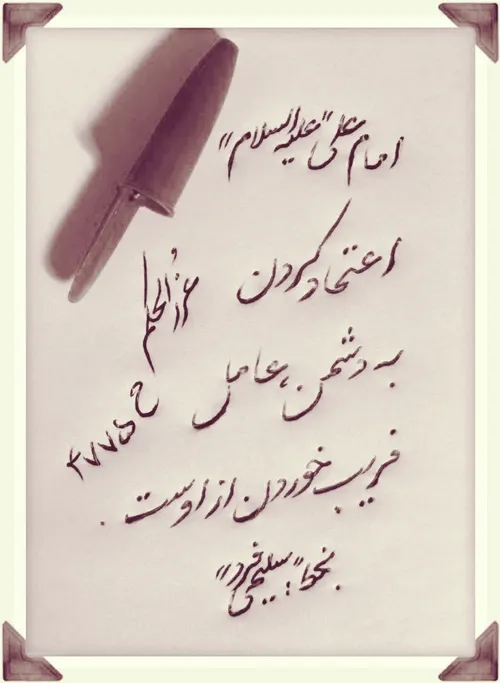 امام علی "علیه السلام"
اعتماد کردن
به دشمن، عامل
فریب خوردن از اوست.
غررالحکم
ح ۴۷۷۵
بخط: "سلیمی فرد"